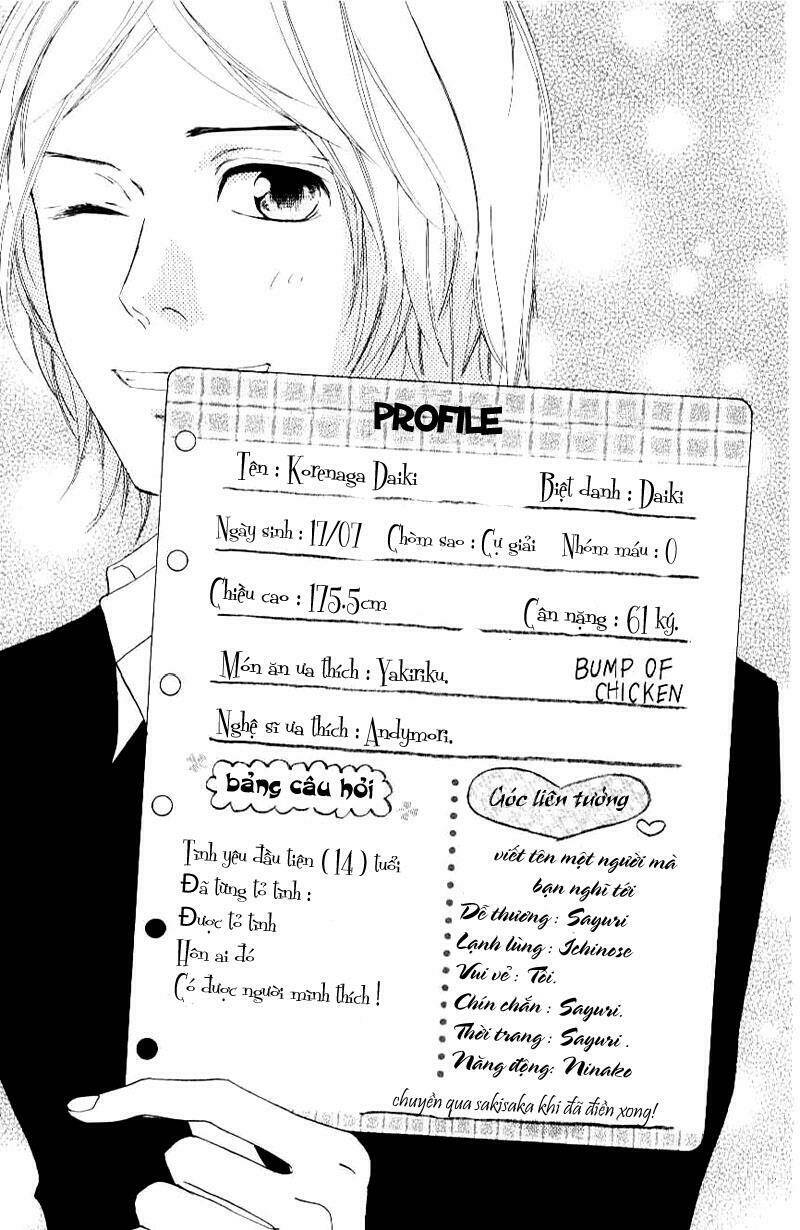 PROFILE
Tên : Korenaga Daiki Biệt danh : Daiki
Ngày sinh : 17/07 Chòm sao : Cự giải Nhóm máu : O
Chiều cao : 175.5cm Cân nặng : 61 ký.
Món ăn ưa thích : Yakiniku.
BUMP OF
CHICKEN
Nghệ sĩ ưa thích : Andymori.
bảng câu hỏi
Tình yêu đầu tiên ( 14 ) tuổi
Đã từng tỏ tình :
Được tỏ tình
Hôn ai đó
Có được người mình thích !
Góc liên tưởng
viết tên một người mà
bạn nghĩ tới
Dễ thương : Sayuri
Lạnh lùng : Ichinose
Vui vẻ : Tôi.
Chín chắn : Sayuri.
Thời trang : Sayuri .
Năng động: Ninako
chuyền qua sakisaka khi đã điền xong!